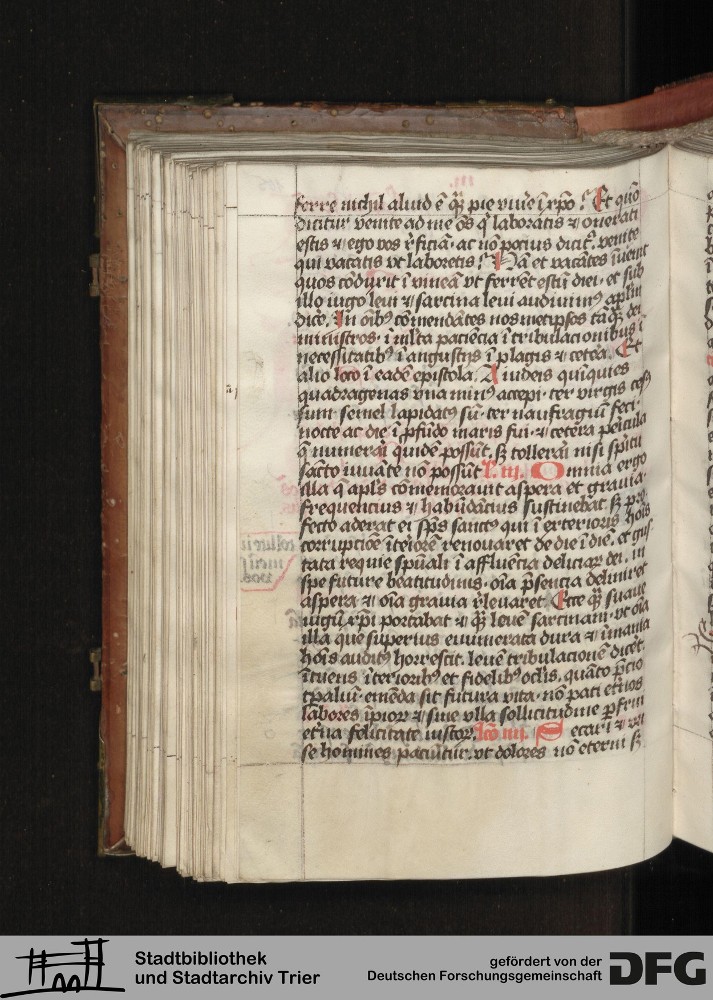 ferre nichil aliud ē q̄ꝫ pie viuē ī xp̄o? Et quō
dicitur venite ad me oēs q̄ laboratis ⁊ onerati
estis ⁊ ego vos r̄ficiā · ac nō pocius dicit᷑ · venite
qui vacatis vt laboretis? Nā et vacātes īuenit
quos cōduxit ī vineā vt ferrēt estū diei · et sub
illo iugo leui ⁊ sarcina leui audiuimꝰ apl̄m
dicē. In oībꝰ cōmendātes nosmetip̄sos tāq̄ꝫ dei
ministros · ī ml̄ta paciēcia ī tribulacionibus ī
necessitatibꝰ ī angustijs ī plagis ⁊ cetera. Et
alio loco ī eadē epistola. A iudeis quīquies
quadragenas vna minꝰ accepi · ter virgis cesꝰ
sum semel lapidatꝰ sū · ter naufragiū feci ·
nocte ac die ī ꝓfūdo maris fui · ⁊ cetera pericula
q̄ numerari quidē possūt · sꝫ tollerari nisi sp̄ritu
sācto iuuāte nō possūt l. iij. Omnia ergo
illa q̄ apl̄s cōmemorauit aspera et grauia ·
frequencius ⁊ habūdācius sustinebat sꝫ pro
fecto aderat ei sp̄s sanctꝰ qui ī exterioris hoīs
corrupcōe īteriorē renouaret de die ī diē · et gus
tata requie sp̄uali ī affluēcia deliciaꝝ dei · in
spe future beatitudinis · oīa p̄sencia deliniret
aspera ⁊ oīa grauia r̄leuaret. Ecce q̄ꝫ suaue
iugū xp̄i portabat ⁊ q̄ꝫ leuē sarcinam · vt oīa
illa que superius enumerata dura ⁊ īmania
hoīs auditꝰ horrescit · leuē tribulacionē dicēt ·
ītuens īterioribꝰ et fidelibꝰ oclīs · quāto p̄cio
tp̄aliū · emēda sit futura vita · nō pati et̄nos
labores īpioꝝ ⁊ sine vlla sollicitudine ꝑfrui
et̄na felicitate iustoꝝ. lc̄o iiij. Secari ⁊ vri
se homines paciūtur · vt dolores nō eterni sꝫ
Stadtbibliothek
und Stadtarchiv Trier
gefördert von der
Deutschen Forschungsgemeinschaft
DFG